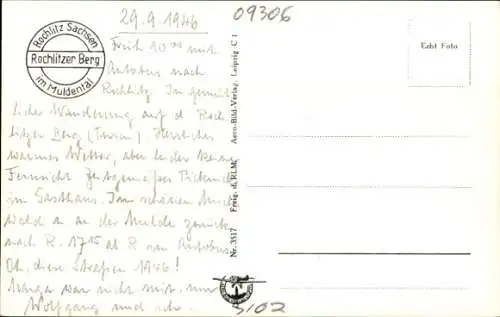 29.9.1946
09306
Rochlitz Sachsen
Rochlitzer Berg
im Muldental
Früh 10 00 mit
Autobus nach
Rochlitz. Im gemüt-
licher Wanderung auf d. Roch-
litzer Berg (Turm). Herrliches
warmes Wetter, aber leider keine
Fernsicht. Zeitgemäßes Picknick
im Gasthaus. Im schönen
wald an der Mulde zurück
nach R. 17 15 ab R. Autobus.
Oh, diese Strapsen 1946!
war nicht mit, nur
Wolfgang und ich.
Nr. 3517 Freig. d. RLM. Aero-Bild-Verlag, Leipzig C 1
Echt Foto
5102